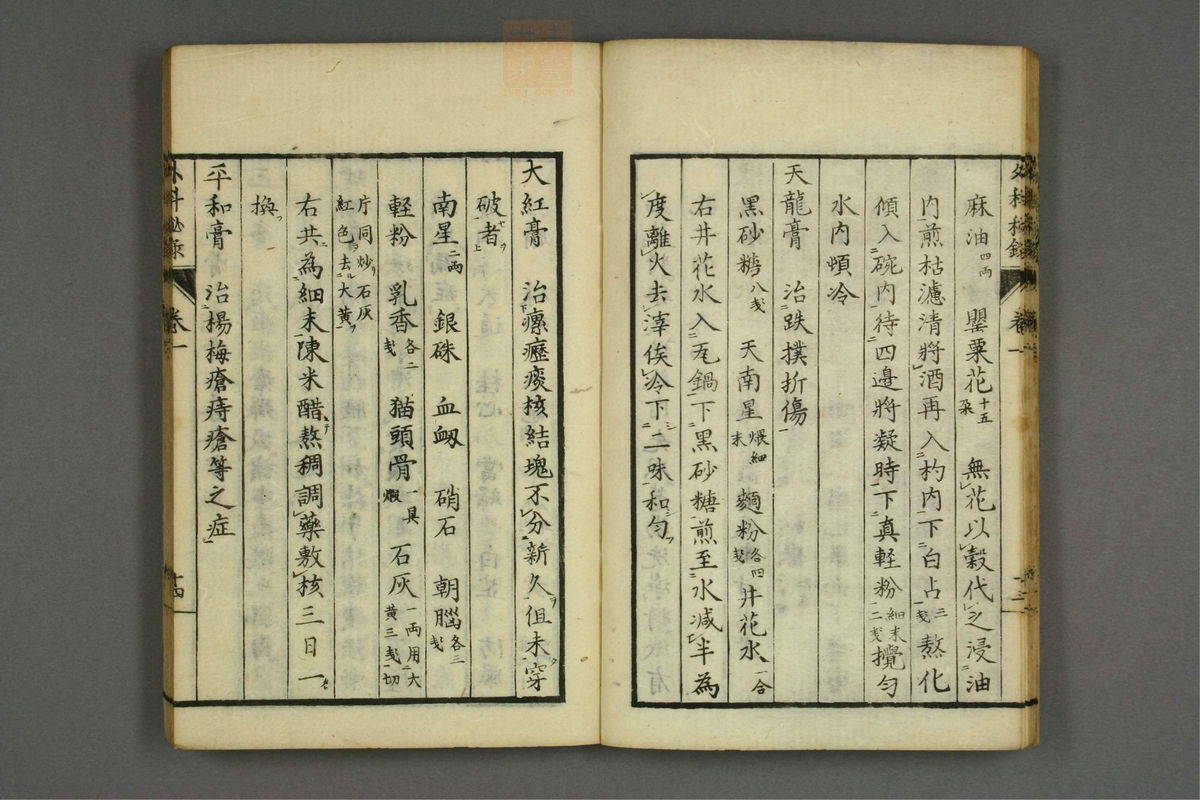 麻油四両 罌粟花十五朶 無花以穀代之浸油
内煎枯濾清將酒再入杓内下白占三戔熬化
傾入碗内待四邊將凝時下真軽粉細末二戔攪匀
水内頓冷
天龍膏 治跌撲折傷
黒砂糖八戔 天南星煨細末 麵粉各四戔 井花水一合
右井花水入瓦鍋下黒砂糖煎至水減半為
度離火去滓俟冷下二味和匀
大紅膏 治瘰癧痰核結塊不分新久但未穿
破者
南星二両 銀硃 血衂 硝石 朝腦各三戔
軽粉 乳香各二戔 猫頭骨一具煅 石灰一両用大黄三戔切
片同炒石灰紅色去大黄
右共為細末陳米醋熬稠調藥敷核三日一
換
平和膏 治楊梅瘡痔瘡等之症
卷一
十四